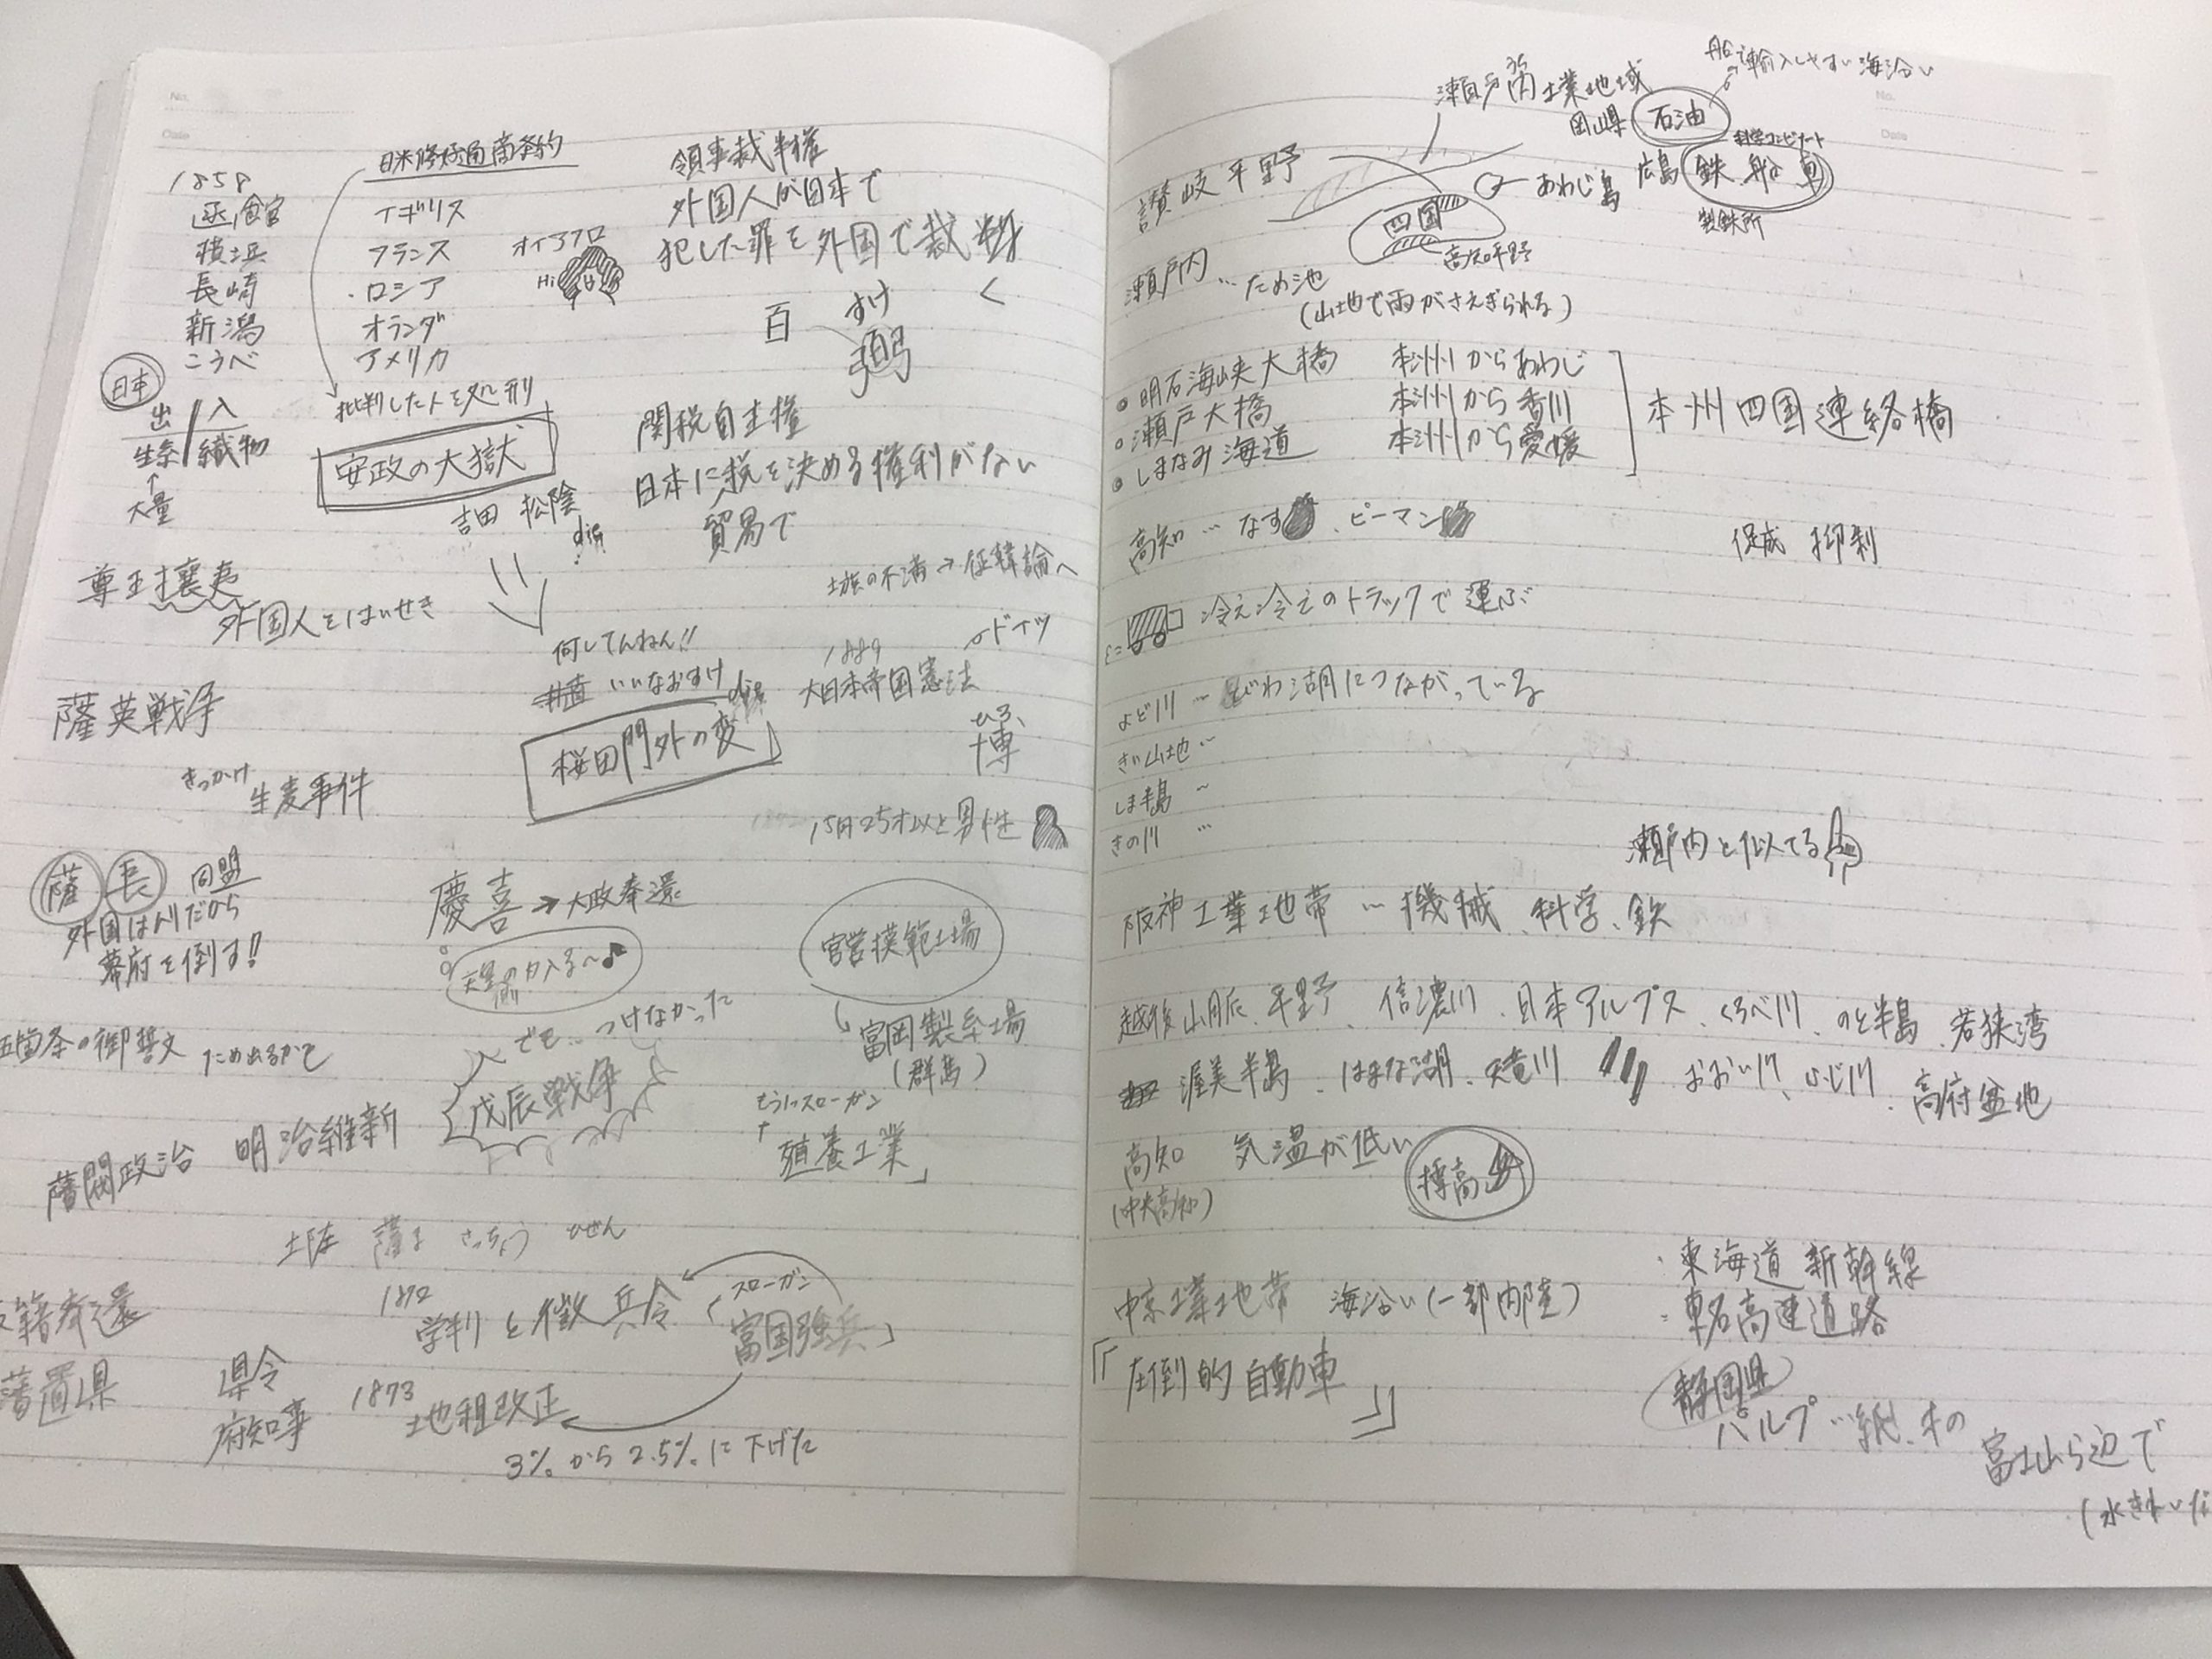 No.
Date
1858
函館
横浜
長崎
新潟
こうべ
日米修好通商条約
イギリス
フランス
ロシア
オランダ
アメリカ
オイラフロ
Hi
領事裁判権
外国人が日本で
犯した罪を外国で裁判
く
百
すけ
弼
日本
出/入
生糸/織物
↑
大量
批判した人を処刑
安政の大獄
吉田 松陰
die
関税自主権
日本に税を決める権利がない
貿易で
尊王攘夷
外国人をはいせき
士族の不満→征韓論へ
何してんねん!!
いいなおすけ
die
桜田門外の変
1889
大日本帝国憲法
ドイツ
ひろ
博
薩英戦争
きっかけ
生麦事件
15円25才以上男性
薩 長 同盟
外国はムリだから
幕府を倒す!!
慶喜→大政奉還
でも…つけなかった
戊辰戦争
官営模範工場
富岡製糸場
(群馬)
スローガン
殖養工業」
五箇条の御誓文
藩閥政治
明治維新
土佐
さっちょう
ひぜん
籍奉還
藩置県
県令
府知事
1872
学制と徴兵令
スローガン
「富国強兵」
1873
地租改正
3%から2.5%に下げた
No.
Date
瀬戸内工業地域
うち
船で輸入しやすい海沿い
岡山県
石油
科学コンビナート
広島
鉄 船 車
製鉄所
讃岐平野
四国
あわじ島
高知平野
瀬戸内…ため池
(山地で雨がさえぎられる)
明石海峡大橋 本州からあわじ
瀬戸大橋 本州から香川
しまなみ海道 本州から愛媛
本州四国連絡橋
高知…なす、ピーマン
促成 抑制
冷え冷えのトラックで運ぶ
よど川…びわ湖につながっている
きい山地…
しま半島〜
きの川…
瀬戸内と似てる
阪神工業地帯…機械、科学、鉄
越後山脈、平野、信濃川、日本アルプス、くろべ川、のと半島、若狭湾
渥美半島、はまな湖、天竜川 おおい川、ふじ川、高府盆地
高知 気温が低い
(中央高知)
標高
中京工業地帯 海沿い(一部内陸)
『圧倒的自動車』
・東海道新幹線
・東名高速道路
静岡県
パルプ…紙、木の
富士山ら辺で
(水きれいだ